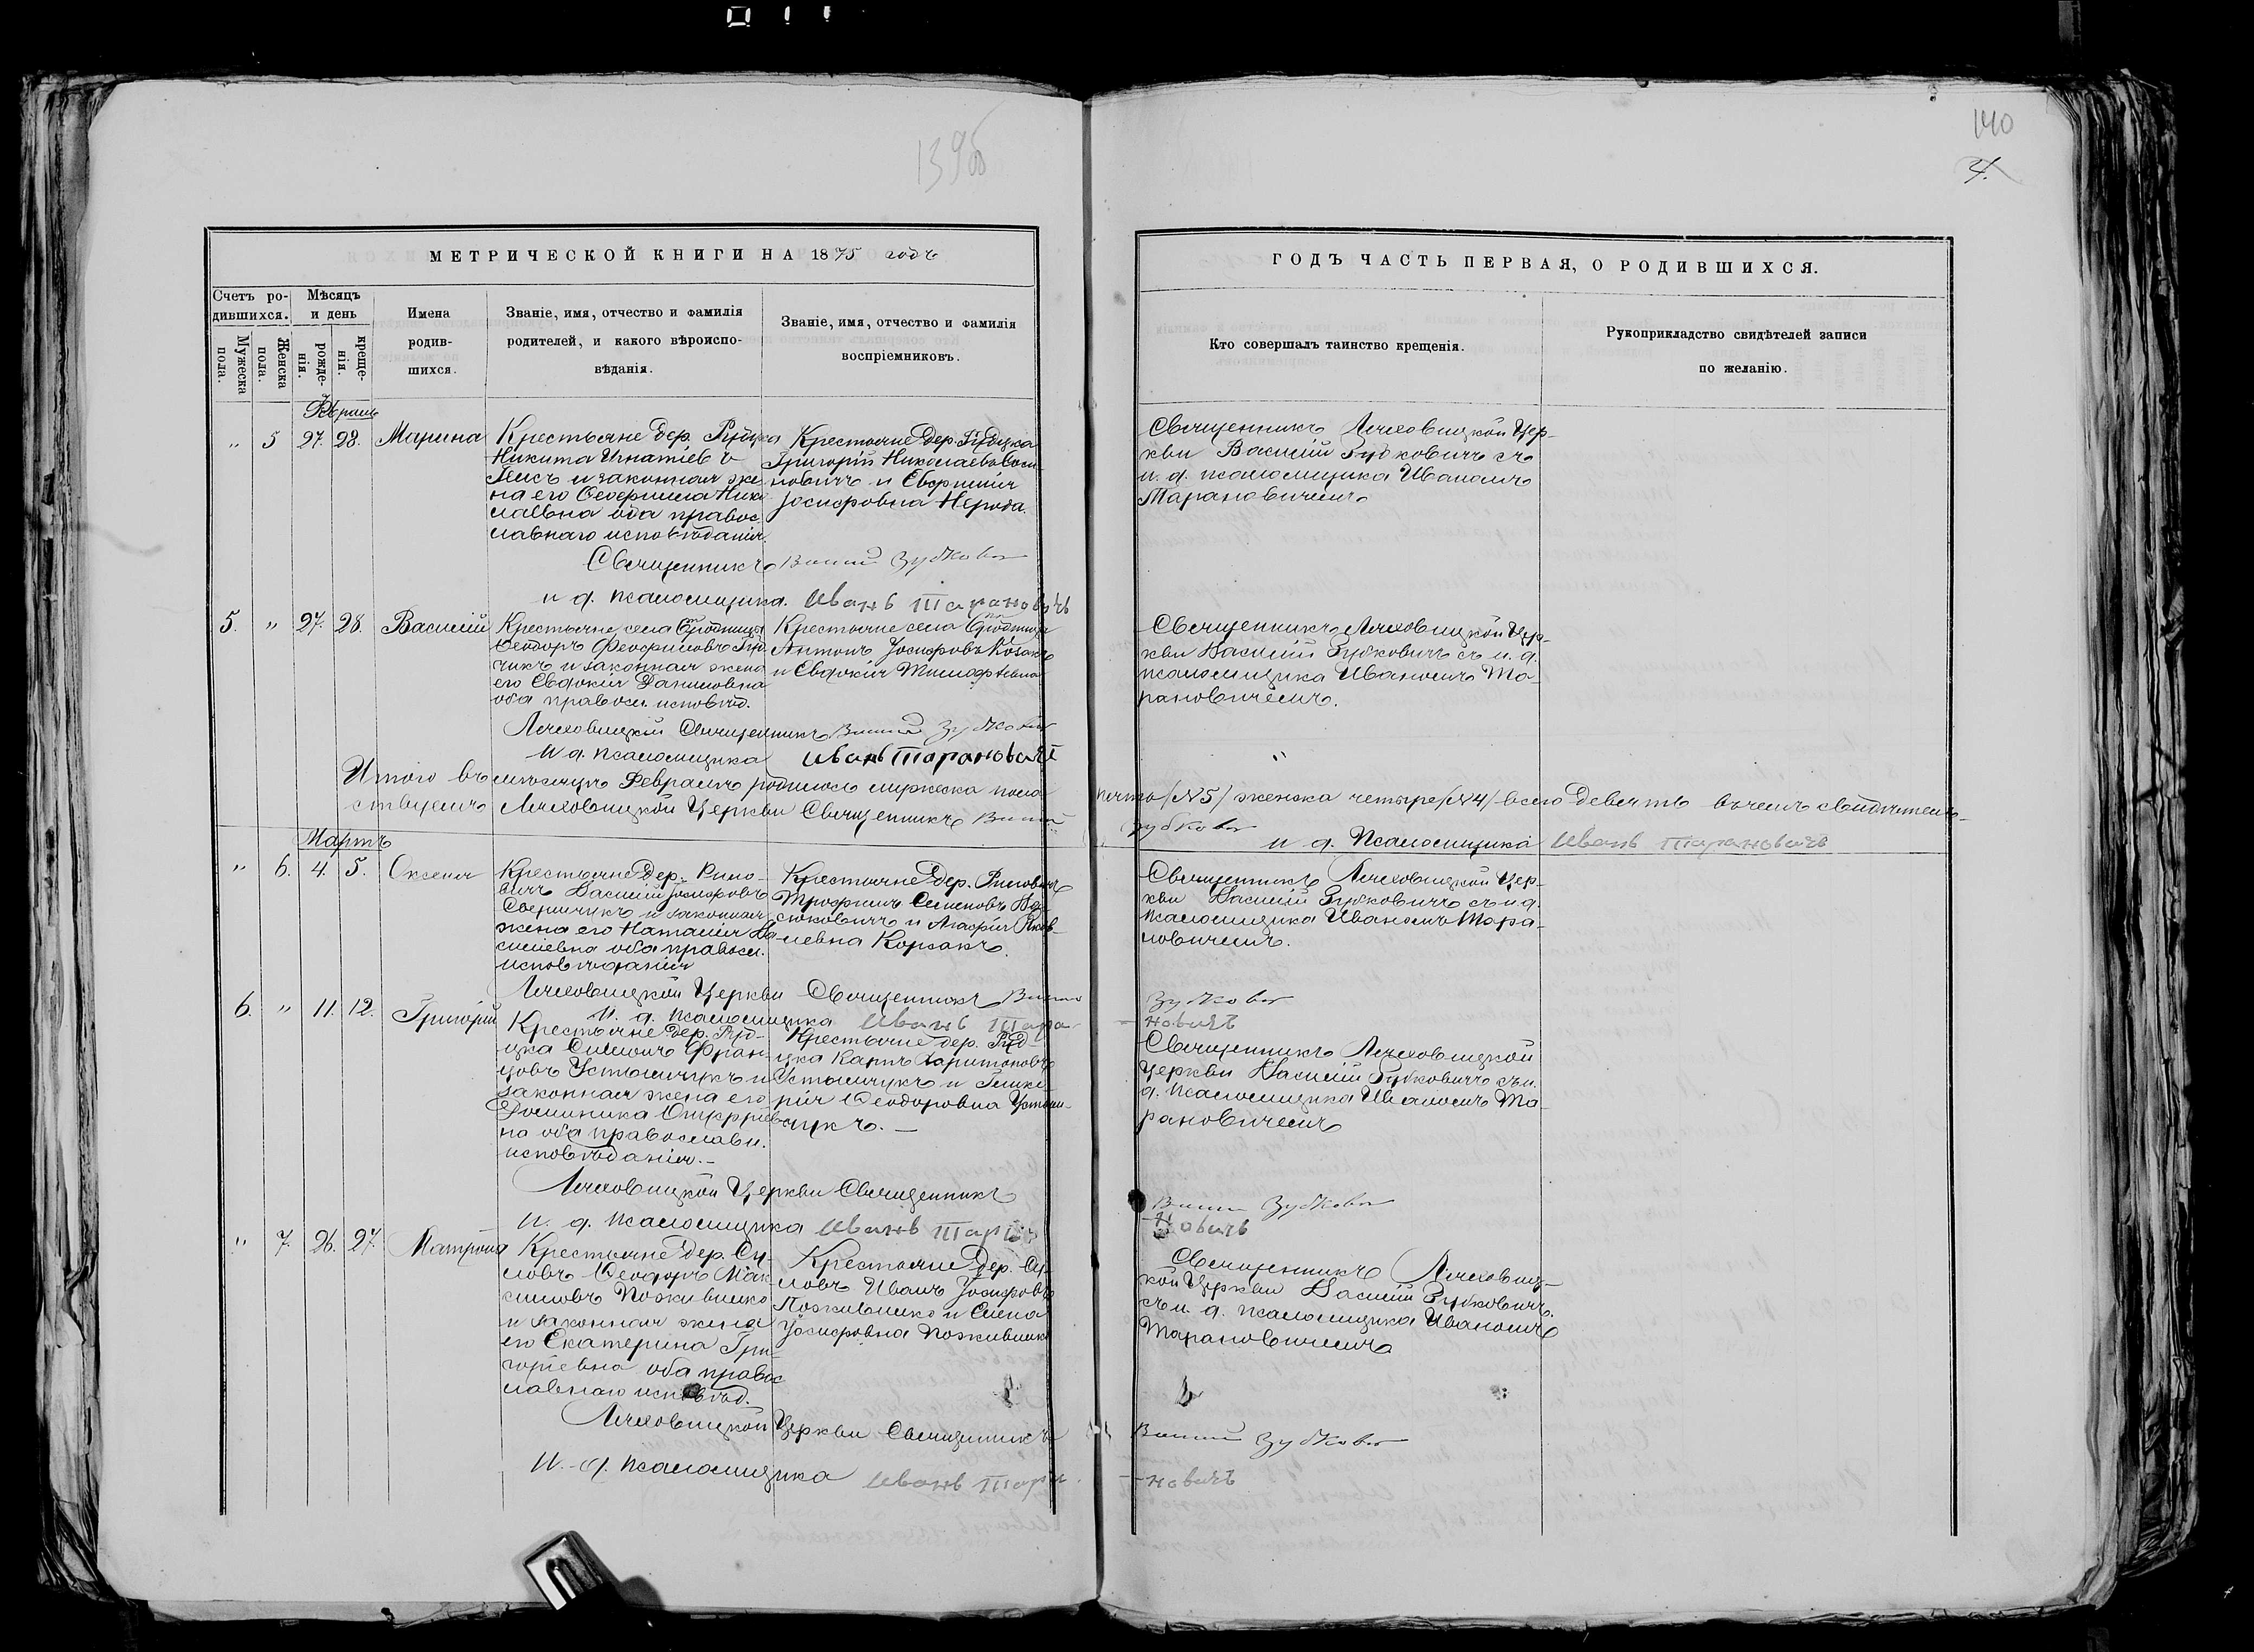 139об
140
4.
МЕТРИЧЕСКОЙ КНИГИ НА 1875 годъ
Счетъ ро-
дившихся.
Мужеска пола.
Женска пола.
Мѣсяцъ
и день
рожде-
нія.
креще-
нія.
Имена
родив-
шихся.
Званіе, имя, отчество и фамилія
родителей, и какого вѣроиспо-
вѣданія.
Званіе, имя, отчество и фамилія
воспріемниковъ.
ГОДЪ ЧАСТЬ ПЕРВАЯ, О РОДИВШИХСЯ.
Кто совершалъ таинство крещенія.
Рукоприкладство свидѣтелей записи
по желанію.
" 5 27. 28. Марина
Крестьяне дер.
Никита Игнатіевъ
и законная же-
на его
оба правос-
лавнаго исповѣданія.
Крестьяне дер.
Григорій Николаевъ
и Евфимія
Іосифовна
Священникъ Ляховицкой Цер-
кви Василій Зубковичъ съ
и. д. псаломщика Иваномъ
Тарановичемъ
Священникъ Василій Зубкович
и д. псаломщика. Иванъ Тарановичъ
5. " 27. 28. Василій
Крестьяне села
Ѳеодоръ
и законная жена
его Евдокія Даниловна
оба правосл. исповѣд.
Крестьяне села
Антонъ Іосифовъ Козакъ
и Евдокія Тимофѣевна
Священникъ Ляховицкой Цер-
кви Василій Зубковичъ съ и. д.
псаломщика Иваномъ Та-
рановичемъ.
Ляховицкій Священникъ Василій Зубкович
И д. псаломщика Иванъ Тарановичъ
Итого въ мѣсяцѣ Февралѣ родилось мужеска пола пять /№5/ женска четыре /№4/ всего девять въ чемъ свидѣтель-
ствуемъ Ляховицкой Церкви Священникъ Василій Зубкович
и д. Псаломщика Иванъ Тарановичъ
Мартъ
" 6. 4. 5. Оксенія
Крестьяне дер.
Василій Іосифовъ
и законная
жена его Наталія Ва-
сильевна оба правосл.
исповѣданія
Крестьяне дер.
Трофимъ Семеновъ
и Агафія Яков-
левна Корзакъ.
Священникъ Ляховицкой Цер-
кви Василій Зубковичъ съ и д.
псаломщика Иваномъ Тара-
новичемъ.
Ляховицкой Церкви Священникъ Василій Зубкович
И. д. псаломщика Иванъ Тара-
новичъ
6. " 11. 12. Григорій
Крестьяне дер. Руд-
цка Симонъ Фран-
цовъ Устымчукъ и
законная жена его
Доминика Онуфріев-
на оба православн.
исповѣданія.-
Крестьяне дер. Руд-
цка Карпъ Харитоновъ
Устымчукъ и
Ѳеодоровна Устым-
чукъ. -
Священникъ Ляховицкой
Церкви Василій Зубковичъ съ и.
д. псаломщика Иваномъ Та-
рановичемъ
Ляховицкой Церкви Священникъ Василій Зубкович
И. д. псаломщика Иванъ Тарановичъ
" 7. 26. 27. Матрона
Крестьяне дер. Су-
ловъ Ѳеодоръ Мак-
симовъ Поживилко
и законная жена
его Екатерина Гри-
горіевна оба правос-
лавнаго исповѣд.
Крестьяне дер. Су-
ловъ Иванъ Іосифовъ
Поживилко и Елена
Іосифовна Поживилко
Священникъ Ляховиц-
кой Церкви Василій Зубковичъ.
съ и. д. псаломщика Иваномъ
Тарановичемъ
Ляховицкой Церкви Священникъ Василій Зубкович
И. д. псаломщика Иванъ Тара-
новичъ